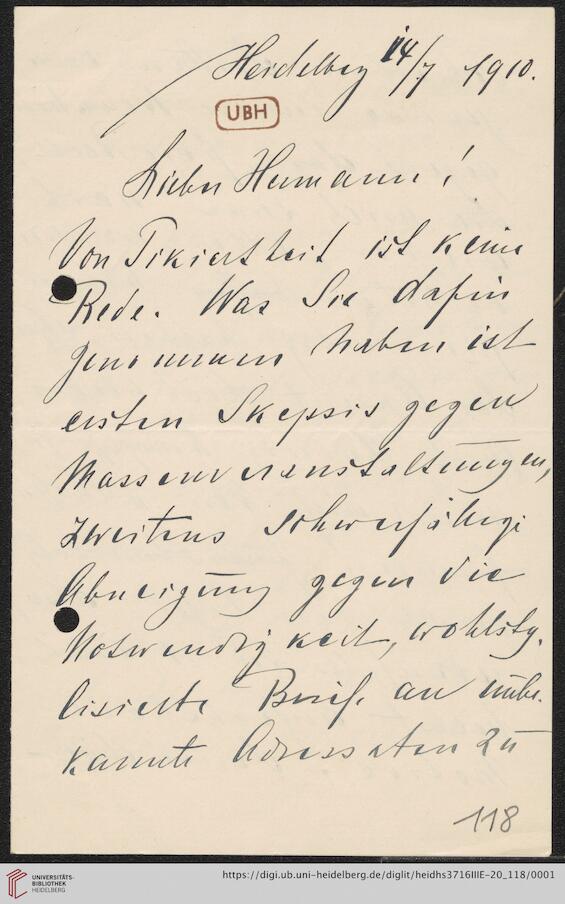 Heidelberg 14/7 1910.
UBH
Lieber Hermann!
Von Pikiertheit ist keine
Rede. Was Sie dafür
genommen haben ist
erstens Skepsis gegen
Massenveranstaltungen,
zweitens schwerfällige
Abneigung gegen die
Notwendigkeit, wohlsty-
lisierte Briefe an unbe-
kannte Adressaten zu
118
UNIVERSITÄTS-
BIBLIOTHEK
HEIDELBERG
https://digi.ub.uni-heidelberg.de/diglit/heidhs3716IIIE-20_118/0001